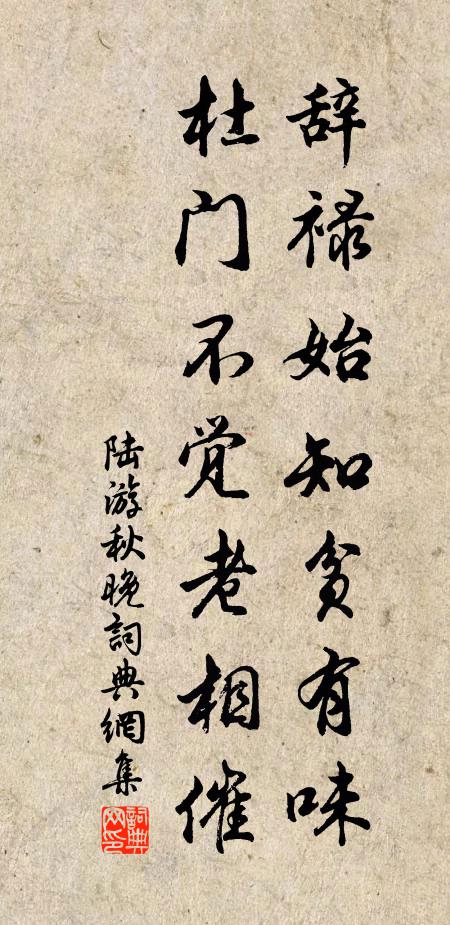 辞禄始知贫有味
杜门不觉老相催
陆游秋晚詞典網集
詞典网印